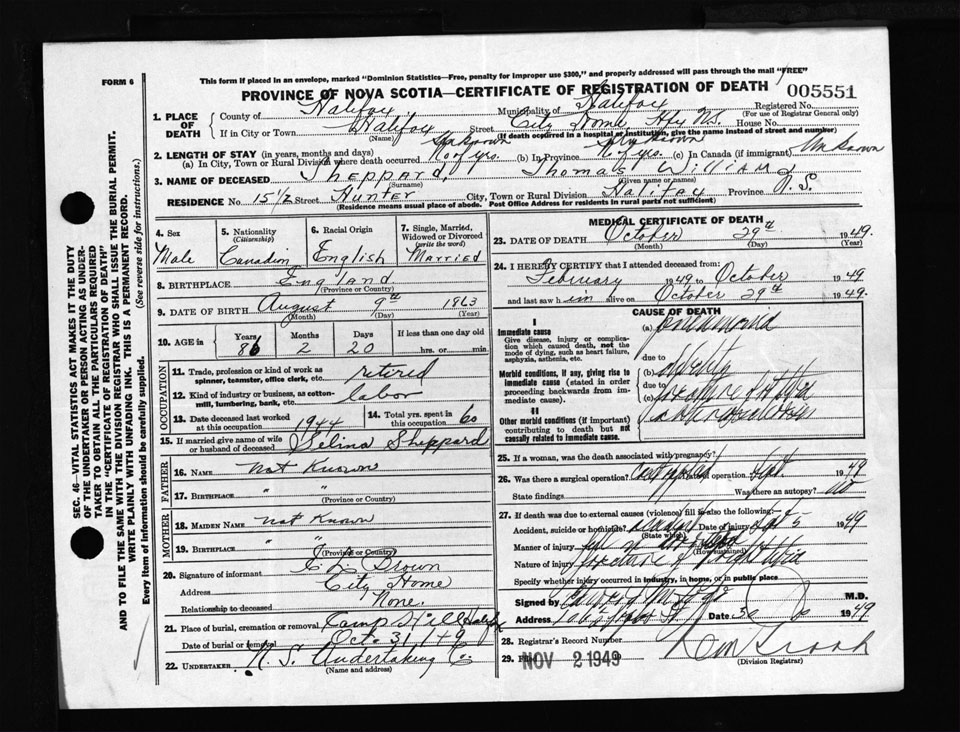 FORM 6
This form if placed in an envelope, marked "Dominion Statistics—Free, penalty for improper use $300," and properly addressed will pass through the mail "FREE"
PROVINCE OF NOVA SCOTIA—CERTIFICATE OF REGISTRATION OF DEATH 005551
1. PLACE OF DEATH County of Halifax Municipality of Halifax Registered No.
(For use of Registrar General only)
If in City or Town Halifax Street City Home Hfx N.S. House No.
(Name) (If death occurred in a hospital or institution, give the name instead of street and number)
2. LENGTH OF STAY (in years, months and days)
(a) In City, Town or Rural Division where death occurred Unknown No of yrs. (b) In Province Unknown N. of yrs. (c) In Canada (if immigrant) Unknown
3. NAME OF DECEASED Sheppard, Thomas William
(Surname) (Given name or names)
RESIDENCE No. 15 1/2 Street Hunter City, Town or Rural Division Halifax Province N.S.
(Residence means usual place of abode. Post Office Address for residents in rural parts not sufficient)
4. Sex Male
5. Nationality (Citizenship) Canadin
6. Racial Origin English
7. Single, Married, Widowed or Divorced (write the word) Married
8. BIRTHPLACE England
(Province or Country)
9. DATE OF BIRTH August 9th 1863
(Month) (Day) (Year)
10. AGE in Years 86 Months 2 Days 20 If less than one day old
hrs. or min.
OCCUPATION
11. Trade, profession or kind of work as spinner, teamster, office clerk, etc. retired
12. Kind of industry or business, as cotton-mill, lumbering, bank, etc. labor
13. Date deceased last worked at this occupation 1944
14. Total yrs. spent in this occupation 60
15. If married give name of wife or husband of deceased Selina Sheppard
FATHER
16. NAME not Known
17. BIRTHPLACE " "
(Province or Country)
MOTHER
18. MAIDEN NAME not Known
19. BIRTHPLACE " "
(Province or Country)
20. Signature of informant Brown
Address City Home
Relationship to deceased None.
21. Place of burial, cremation or removal Camp Hill Halifax
Date of burial or removal Oct. 31 49
22. UNDERTAKER N. S. Undertaking Co
(Name and address)
MEDICAL CERTIFICATE OF DEATH
23. DATE OF DEATH October 29th 1949.
(Month) (Day) (Year)
24. I HEREBY CERTIFY that I attended deceased from:
February 1949 to October 1949
and last saw him alive on October 29th 1949.
CAUSE OF DEATH
I
Immediate cause
Give disease, injury or complication which caused death, not the mode of dying, such as heart failure, asphyxia, asthenia, etc.
(a) pneumonia
due to
Morbid conditions, if any, giving rise to immediate cause (stated in order proceeding backwards from immediate cause).
(b)
due to
(c)
II
Other morbid conditions (if important) contributing to death but not causally related to immediate cause.
25. If a woman, was the death associated with pregnancy?
26. Was there a surgical operation? Date of operation Sept. 1949
State findings Was there an autopsy? no
27. If death was due to external causes (violence) fill in also the following:
Accident, suicide or homicide? accident Date of injury Sept 5 1949
(State which)
Manner of injury fall
(How sustained)
Nature of injury fracture of right tibia
Specify whether injury occurred in industry, in home, or in public place
Signed by M.D.
Address Date 30 10 1949
28. Registrar's Record Number
29. Filed NOV 2 1949
(Division Registrar)
SEC. 46—VITAL STATISTICS ACT MAKES IT THE DUTY OF THE UNDERTAKER OR PERSON ACTING AS UNDERTAKER TO OBTAIN ALL THE PARTICULARS REQUIRED IN THE "CERTIFICATE OF REGISTRATION OF DEATH" AND TO FILE THE SAME WITH THE DIVISION REGISTRAR WHO SHALL ISSUE THE BURIAL PERMIT.
WRITE PLAINLY WITH UNFADING INK. THIS IS A PERMANENT RECORD.
Every item of information should be carefully supplied. (See reverse side for instructions.)